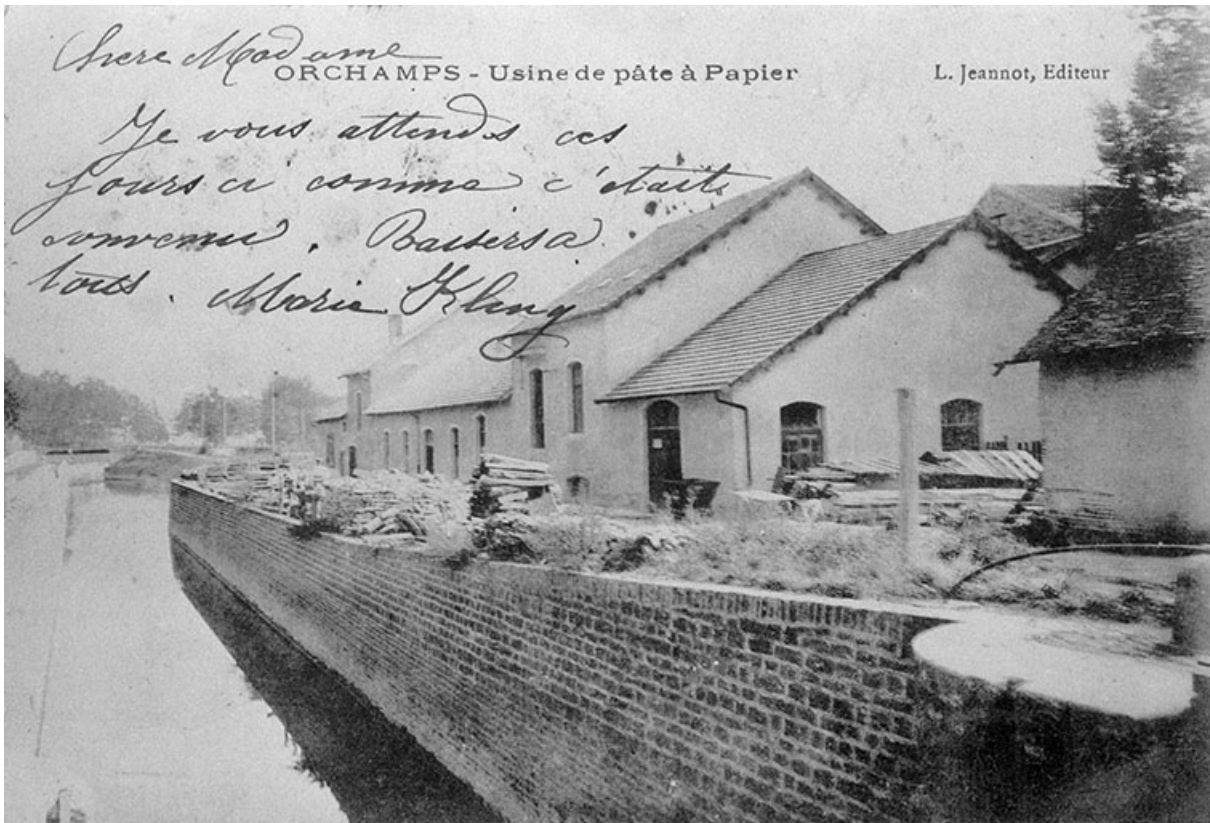 Chere Madame
ORCHAMPS - Usine de pâte à Papier
L. Jeannot, Editeur
Je vous attends ces
jours ci comme c'était
convenu. Baisers à
tous. Marie Kling